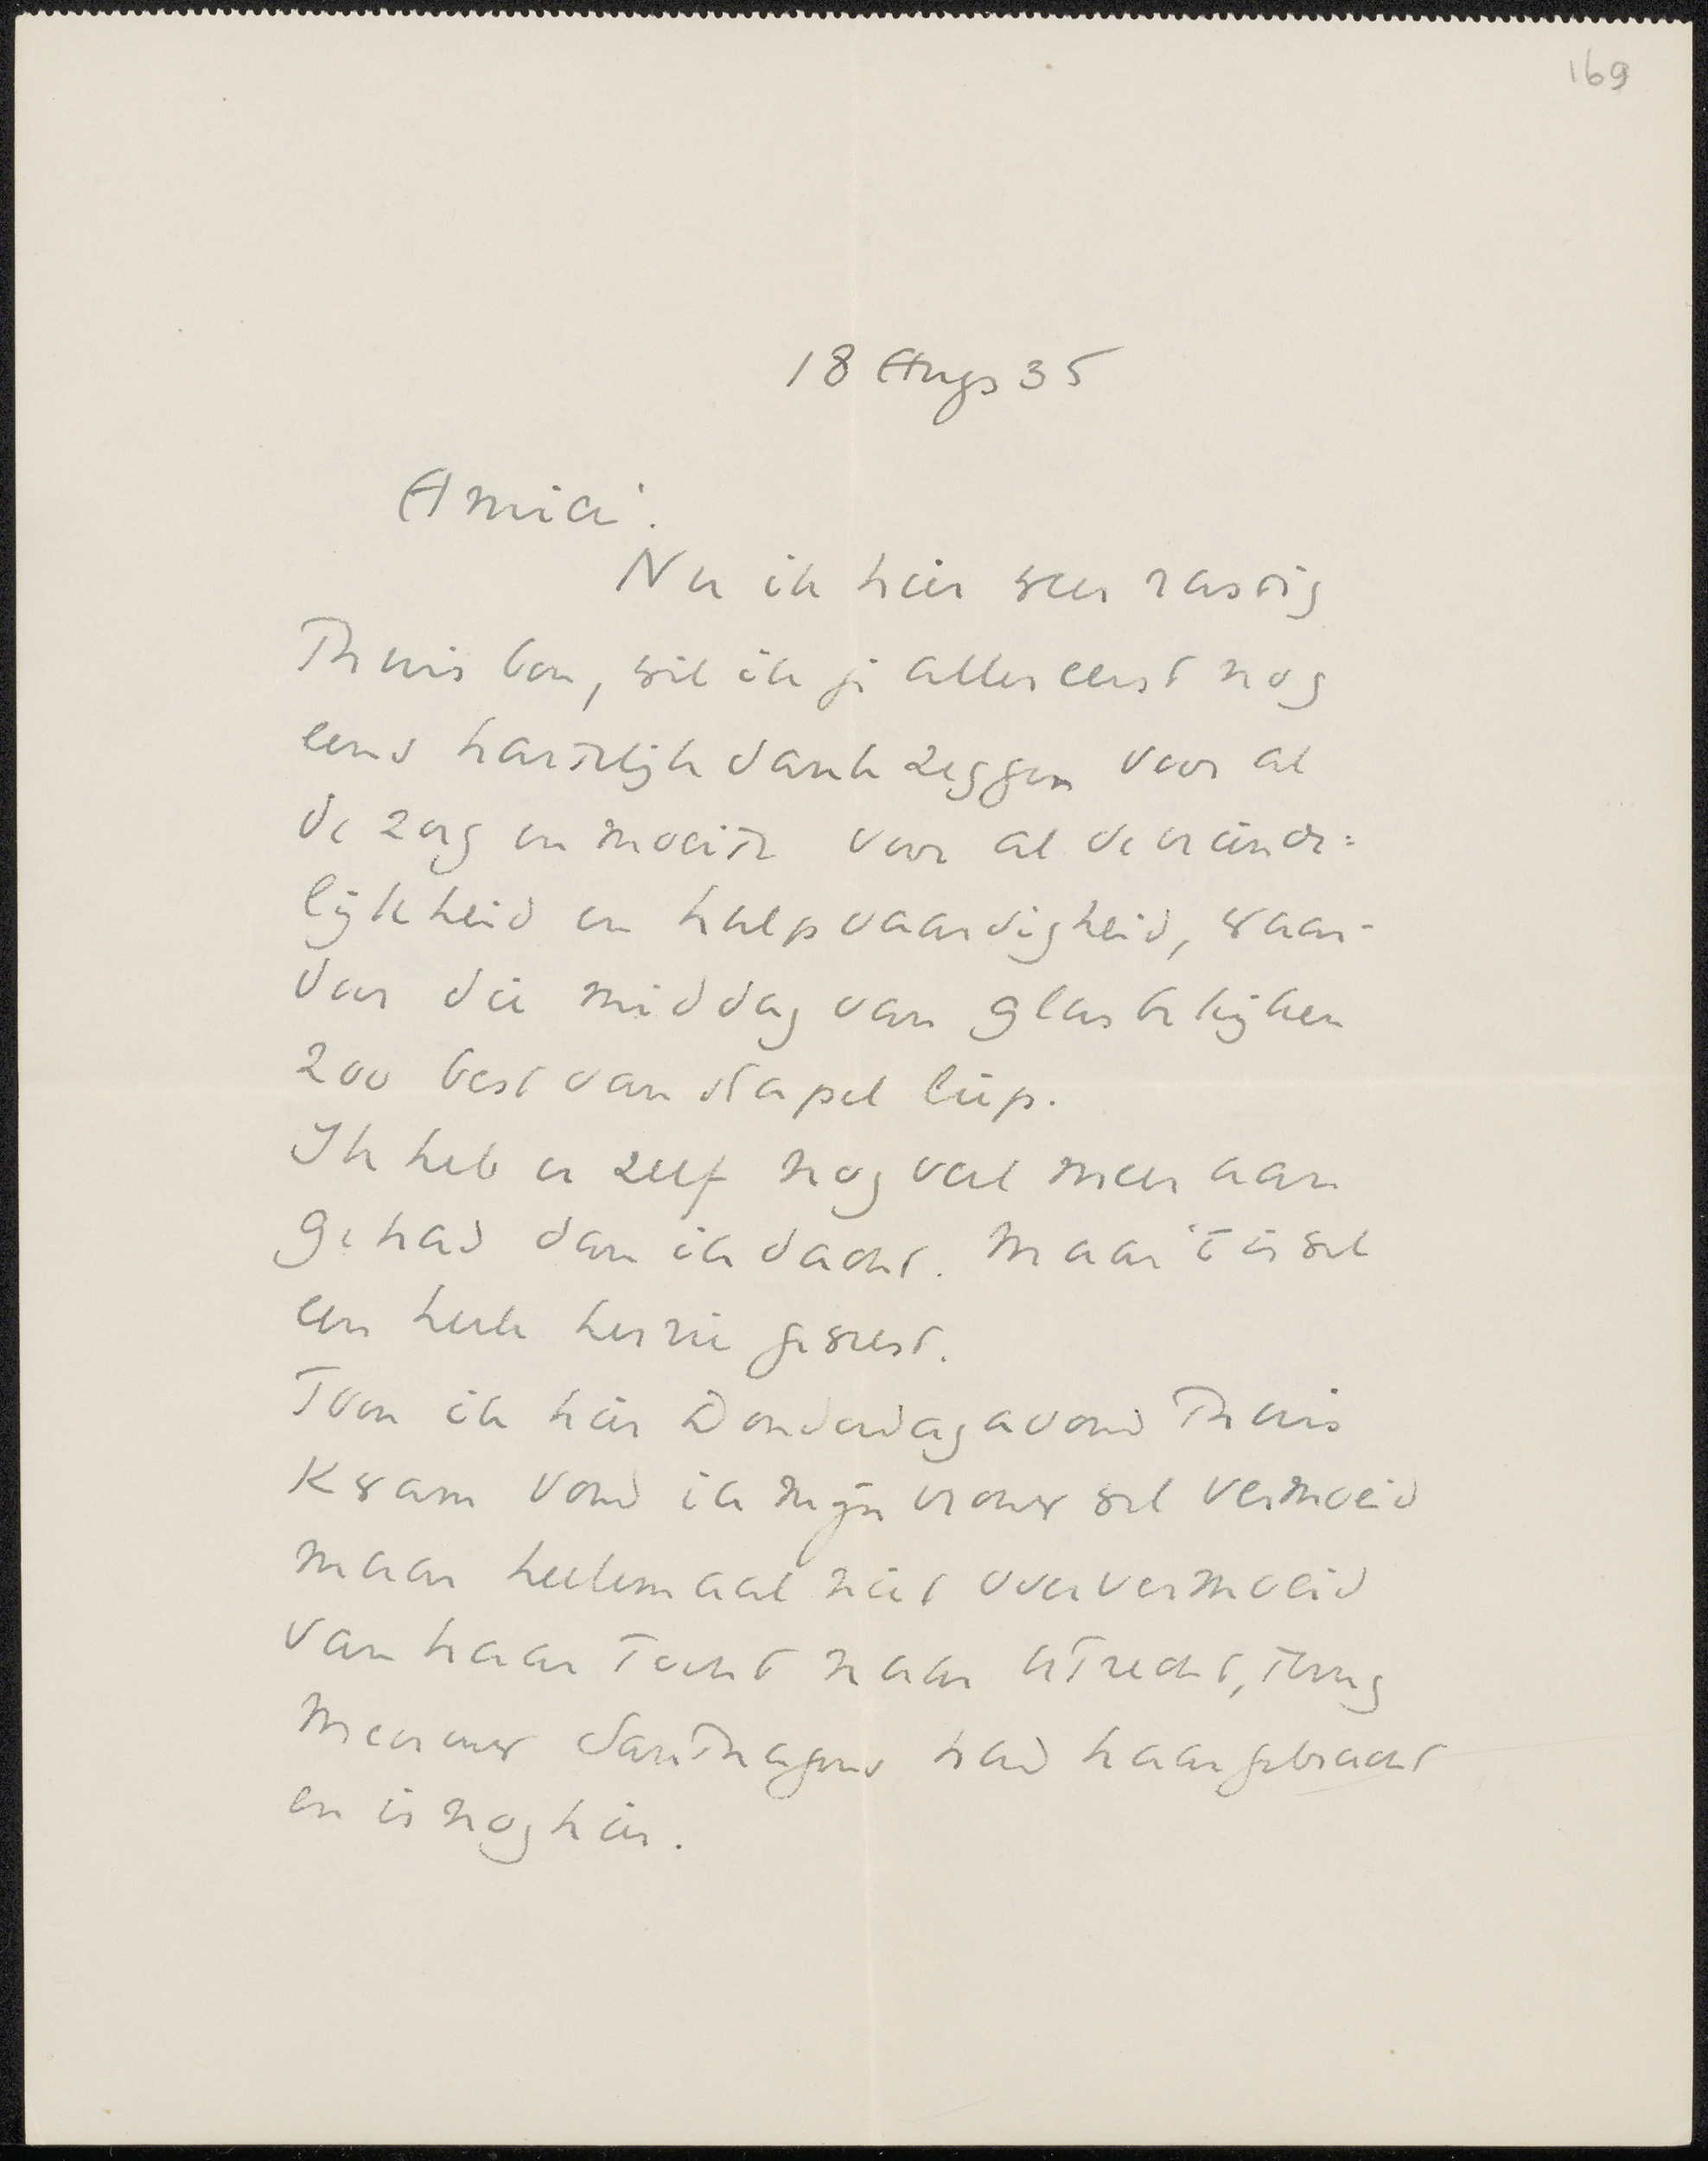 169
18 Augs 35
Amice.
Nu ik hier weer rustig
Thuis ben, wil ik je allereerst nog
eens hartelijk dank zeggen voor al
de zorg en moeite voor al de vriende=
lijkheid en hulpvaardigheid, waar-
door die middag van glas bekijken
zoo best van stapel liep.
Ik heb er zelf nog veel meer aan
gehad dan ik dacht. Maar 't is wel
een heele herrie geweest.
Toen ik hier Donderdagavond Thuis
Kwam vond ik mijn vrouw wel vermoeid
maar heelemaal niet oververmoeid
van haar Tocht naar Utrecht, Terug
Mevrouw had haar gebracht
en is nog hier.